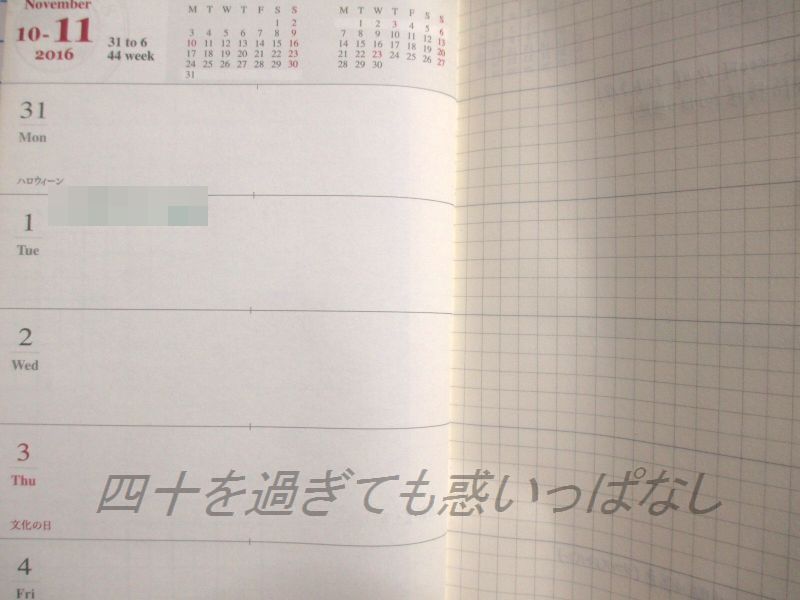 November
10-11
2016
31 to 6
44 week
M T W T F S S
1 2
3 4 5 6 7 8 9
10 11 12 13 14 15 16
17 18 19 20 21 22 23
24 25 26 27 28 29 30
31
M T W T F S S
1 2 3 4 5 6
7 8 9 10 11 12 13
14 15 16 17 18 19 20
21 22 23 24 25 26 27
28 29 30
31
Mon
ハロウィーン
1
Tue
2
Wed
3
Thu
文化の日
4
Fri
四十を過ぎても惑いっぱなし